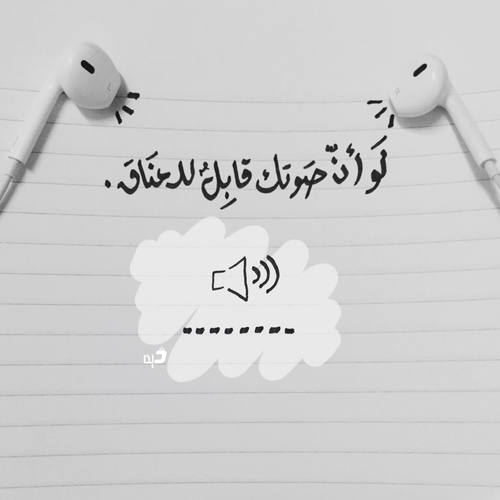 لَو أنّ صَوتك قابِلٌ للعنَاق.